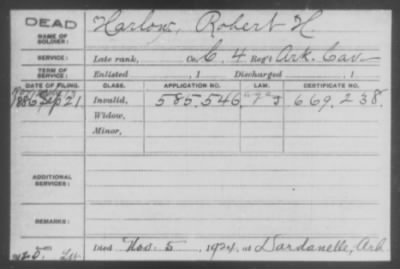 DEAD
NAME OF SOLDIER: Harlow, Robert H.
SERVICE: Late rank, Co. C, 4 Reg't Ark. Cav
TERM OF SERVICE: Enlisted , 1 Discharged , 1
DATE OF FILING. CLASS. APPLICATION NO. LAW. CERTIFICATE NO.
1886 Sep 21 Invalid, 585.546 669.238.
Widow,
Minor,
ADDITIONAL SERVICES:
REMARKS:
Died Nov. 5, 1924, at Dardanelle, Ark